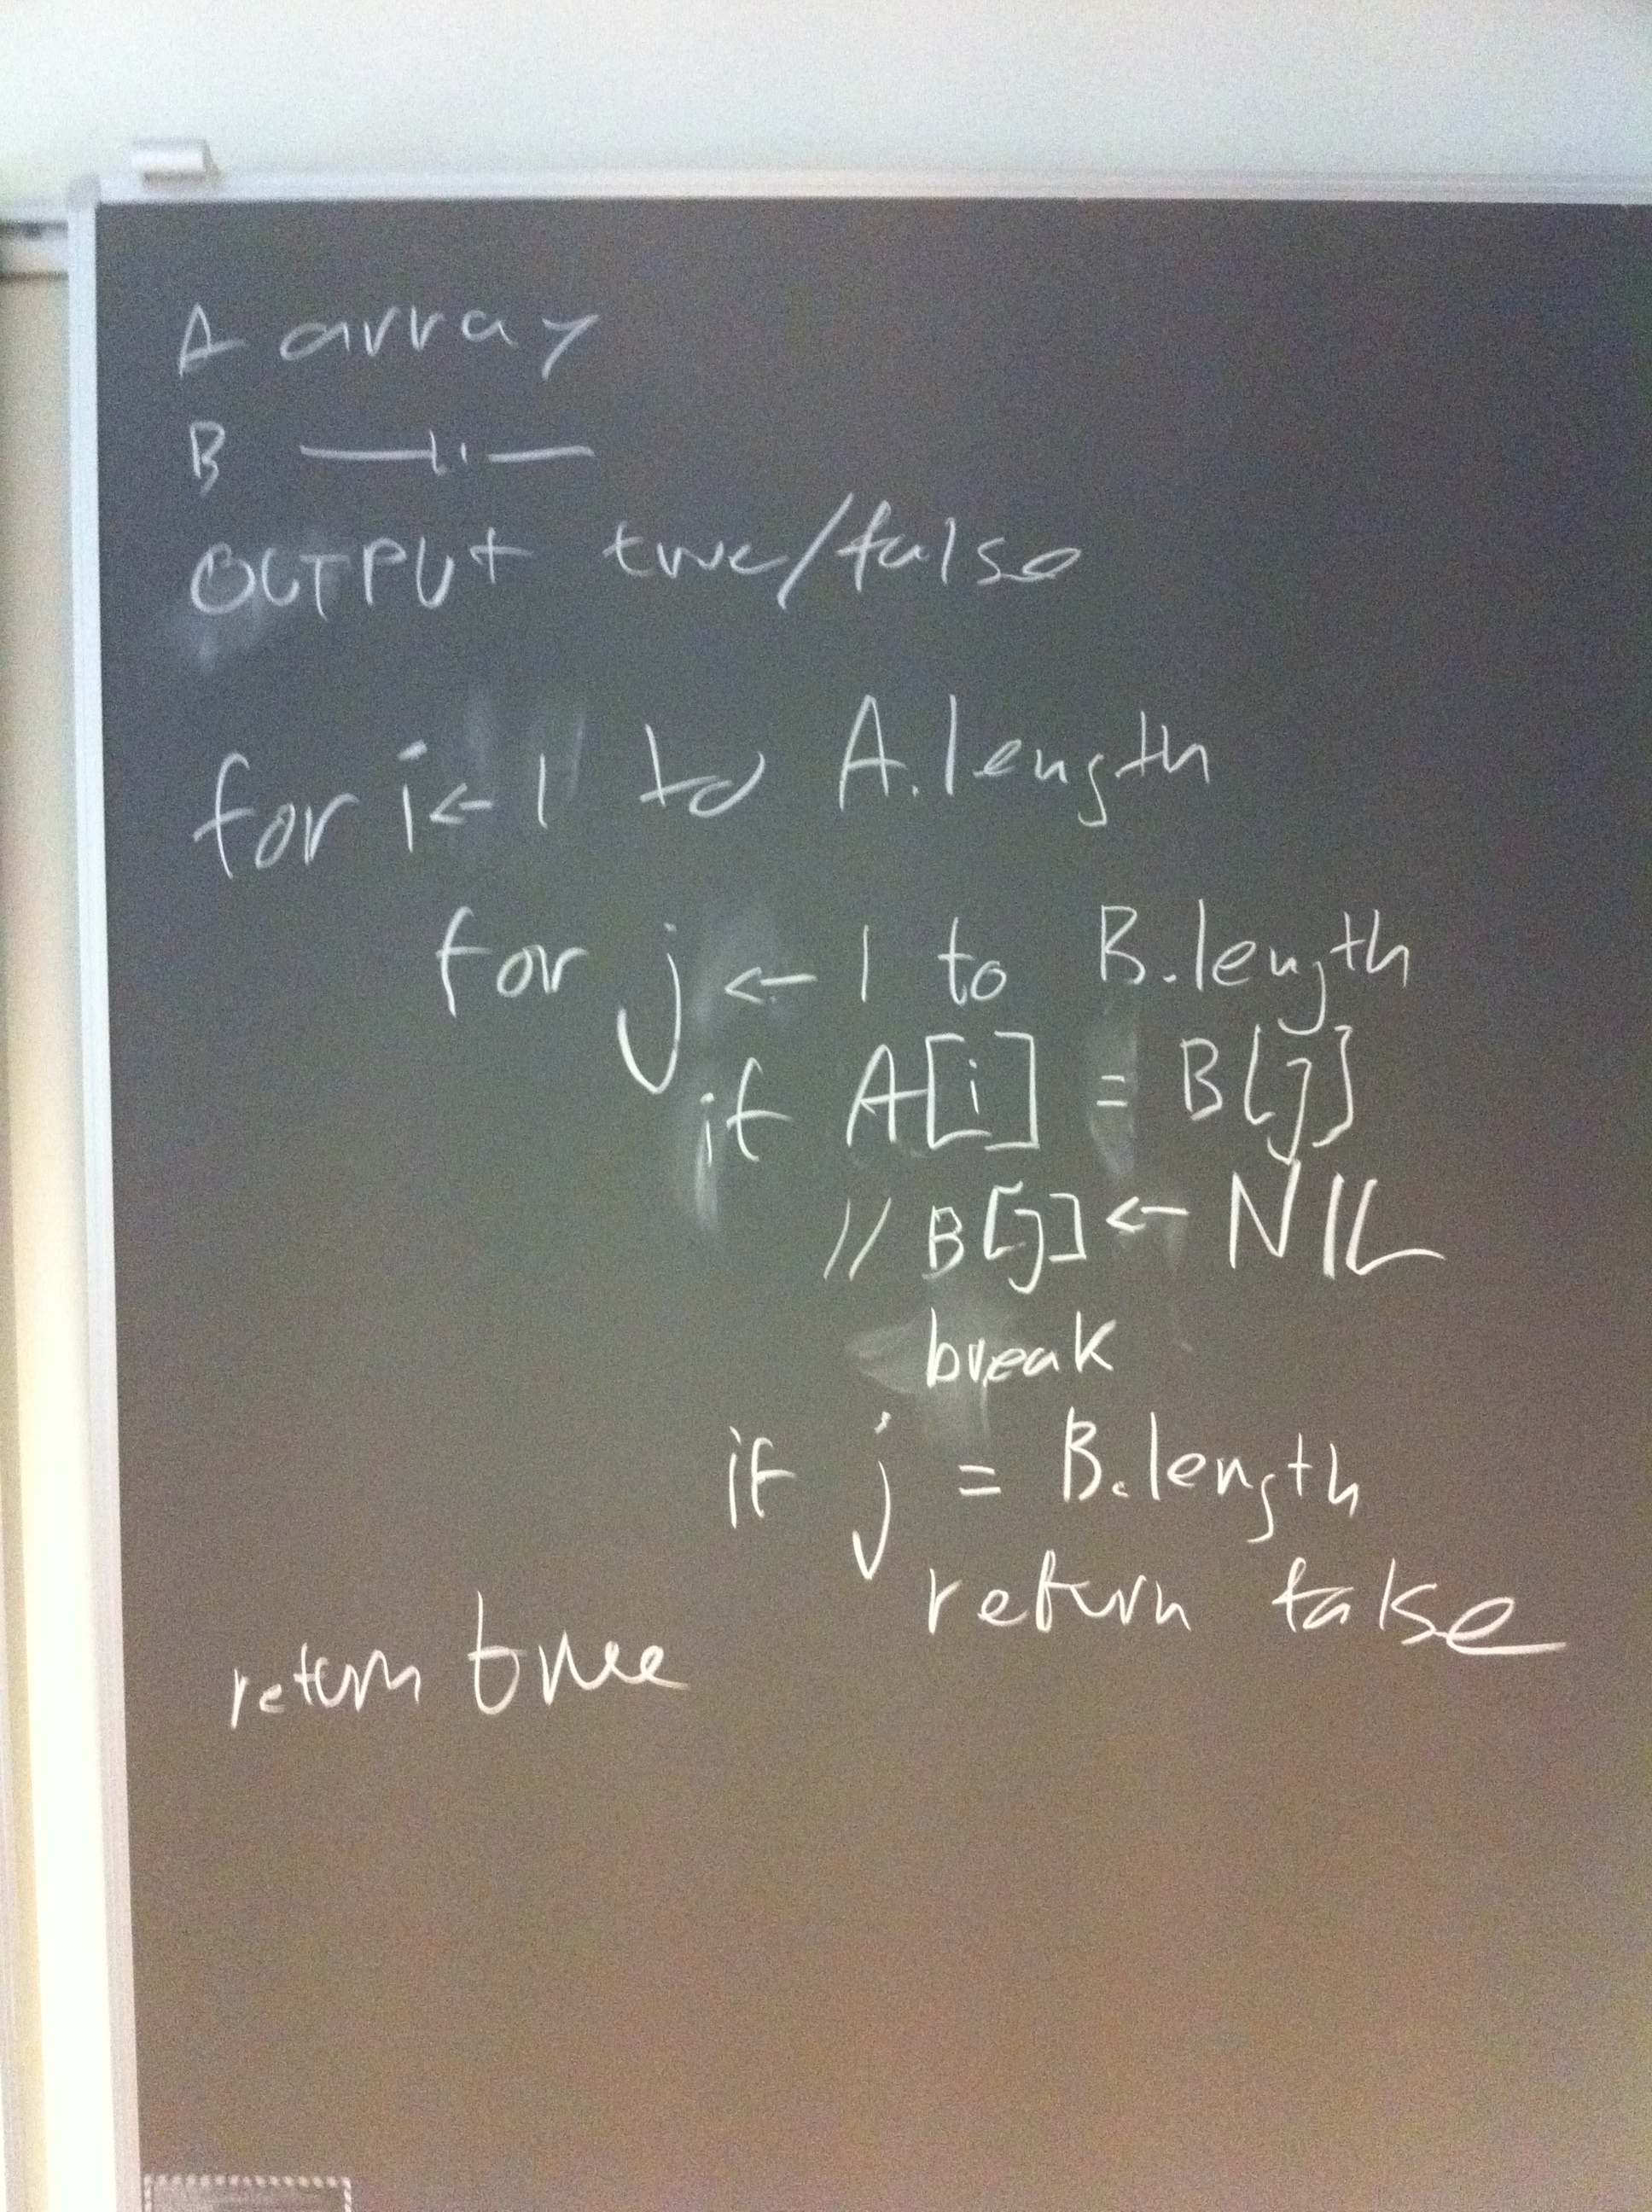 A array
B —〃—
OUTPUT true/false
for i ← 1 to A.length
for j ← 1 to B.length
if A[i] = B[j]
// B[j] ← NIL
break
if j = B.length
return false
return true